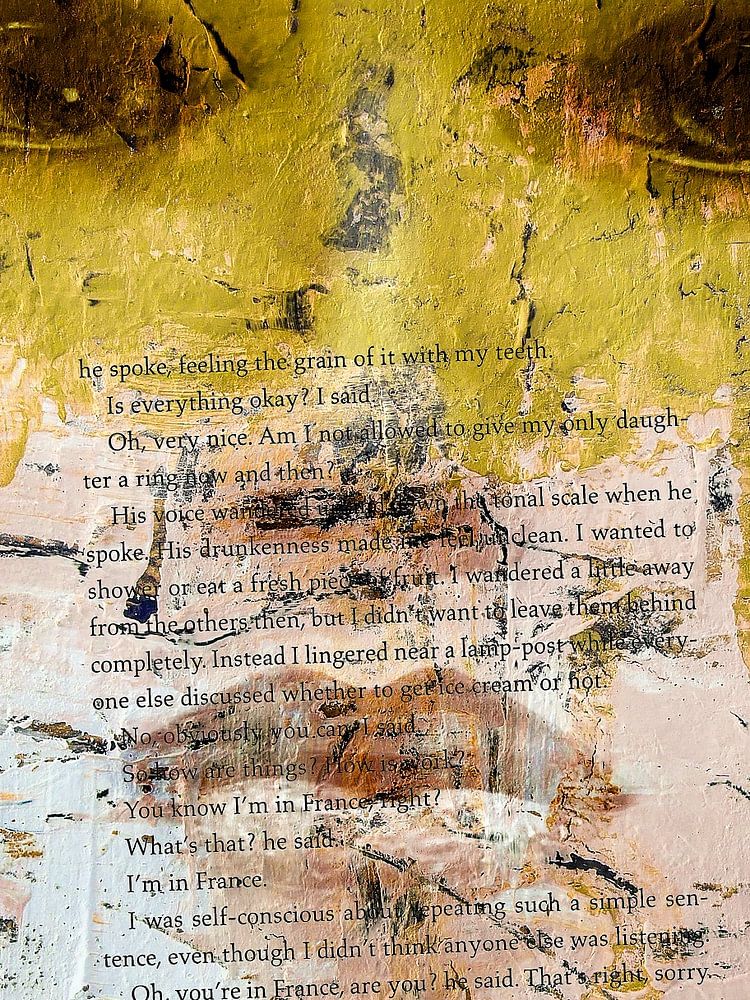 he spoke, feeling the grain of it with my teeth.
Is everything okay? I said.
Oh, very nice. Am I not allowed to give my only daugh-
ter a ring now and then?
His voice wandered up and down the tonal scale when he
spoke. His drunkenness made me feel unclean. I wanted to
shower or eat a fresh piece of fruit. I wandered a little away
from the others then, but I didn't want to leave them behind
completely. Instead I lingered near a lamp-post while every-
one else discussed whether to get ice cream or not.
No, obviously you can, I said.
So how are things? How is work?
You know I'm in France, right?
What's that? he said.
I'm in France.
I was self-conscious about repeating such a simple sen-
tence, even though I didn't think anyone else was listening.
Oh, you're in France, are you? he said. That's right, sorry.